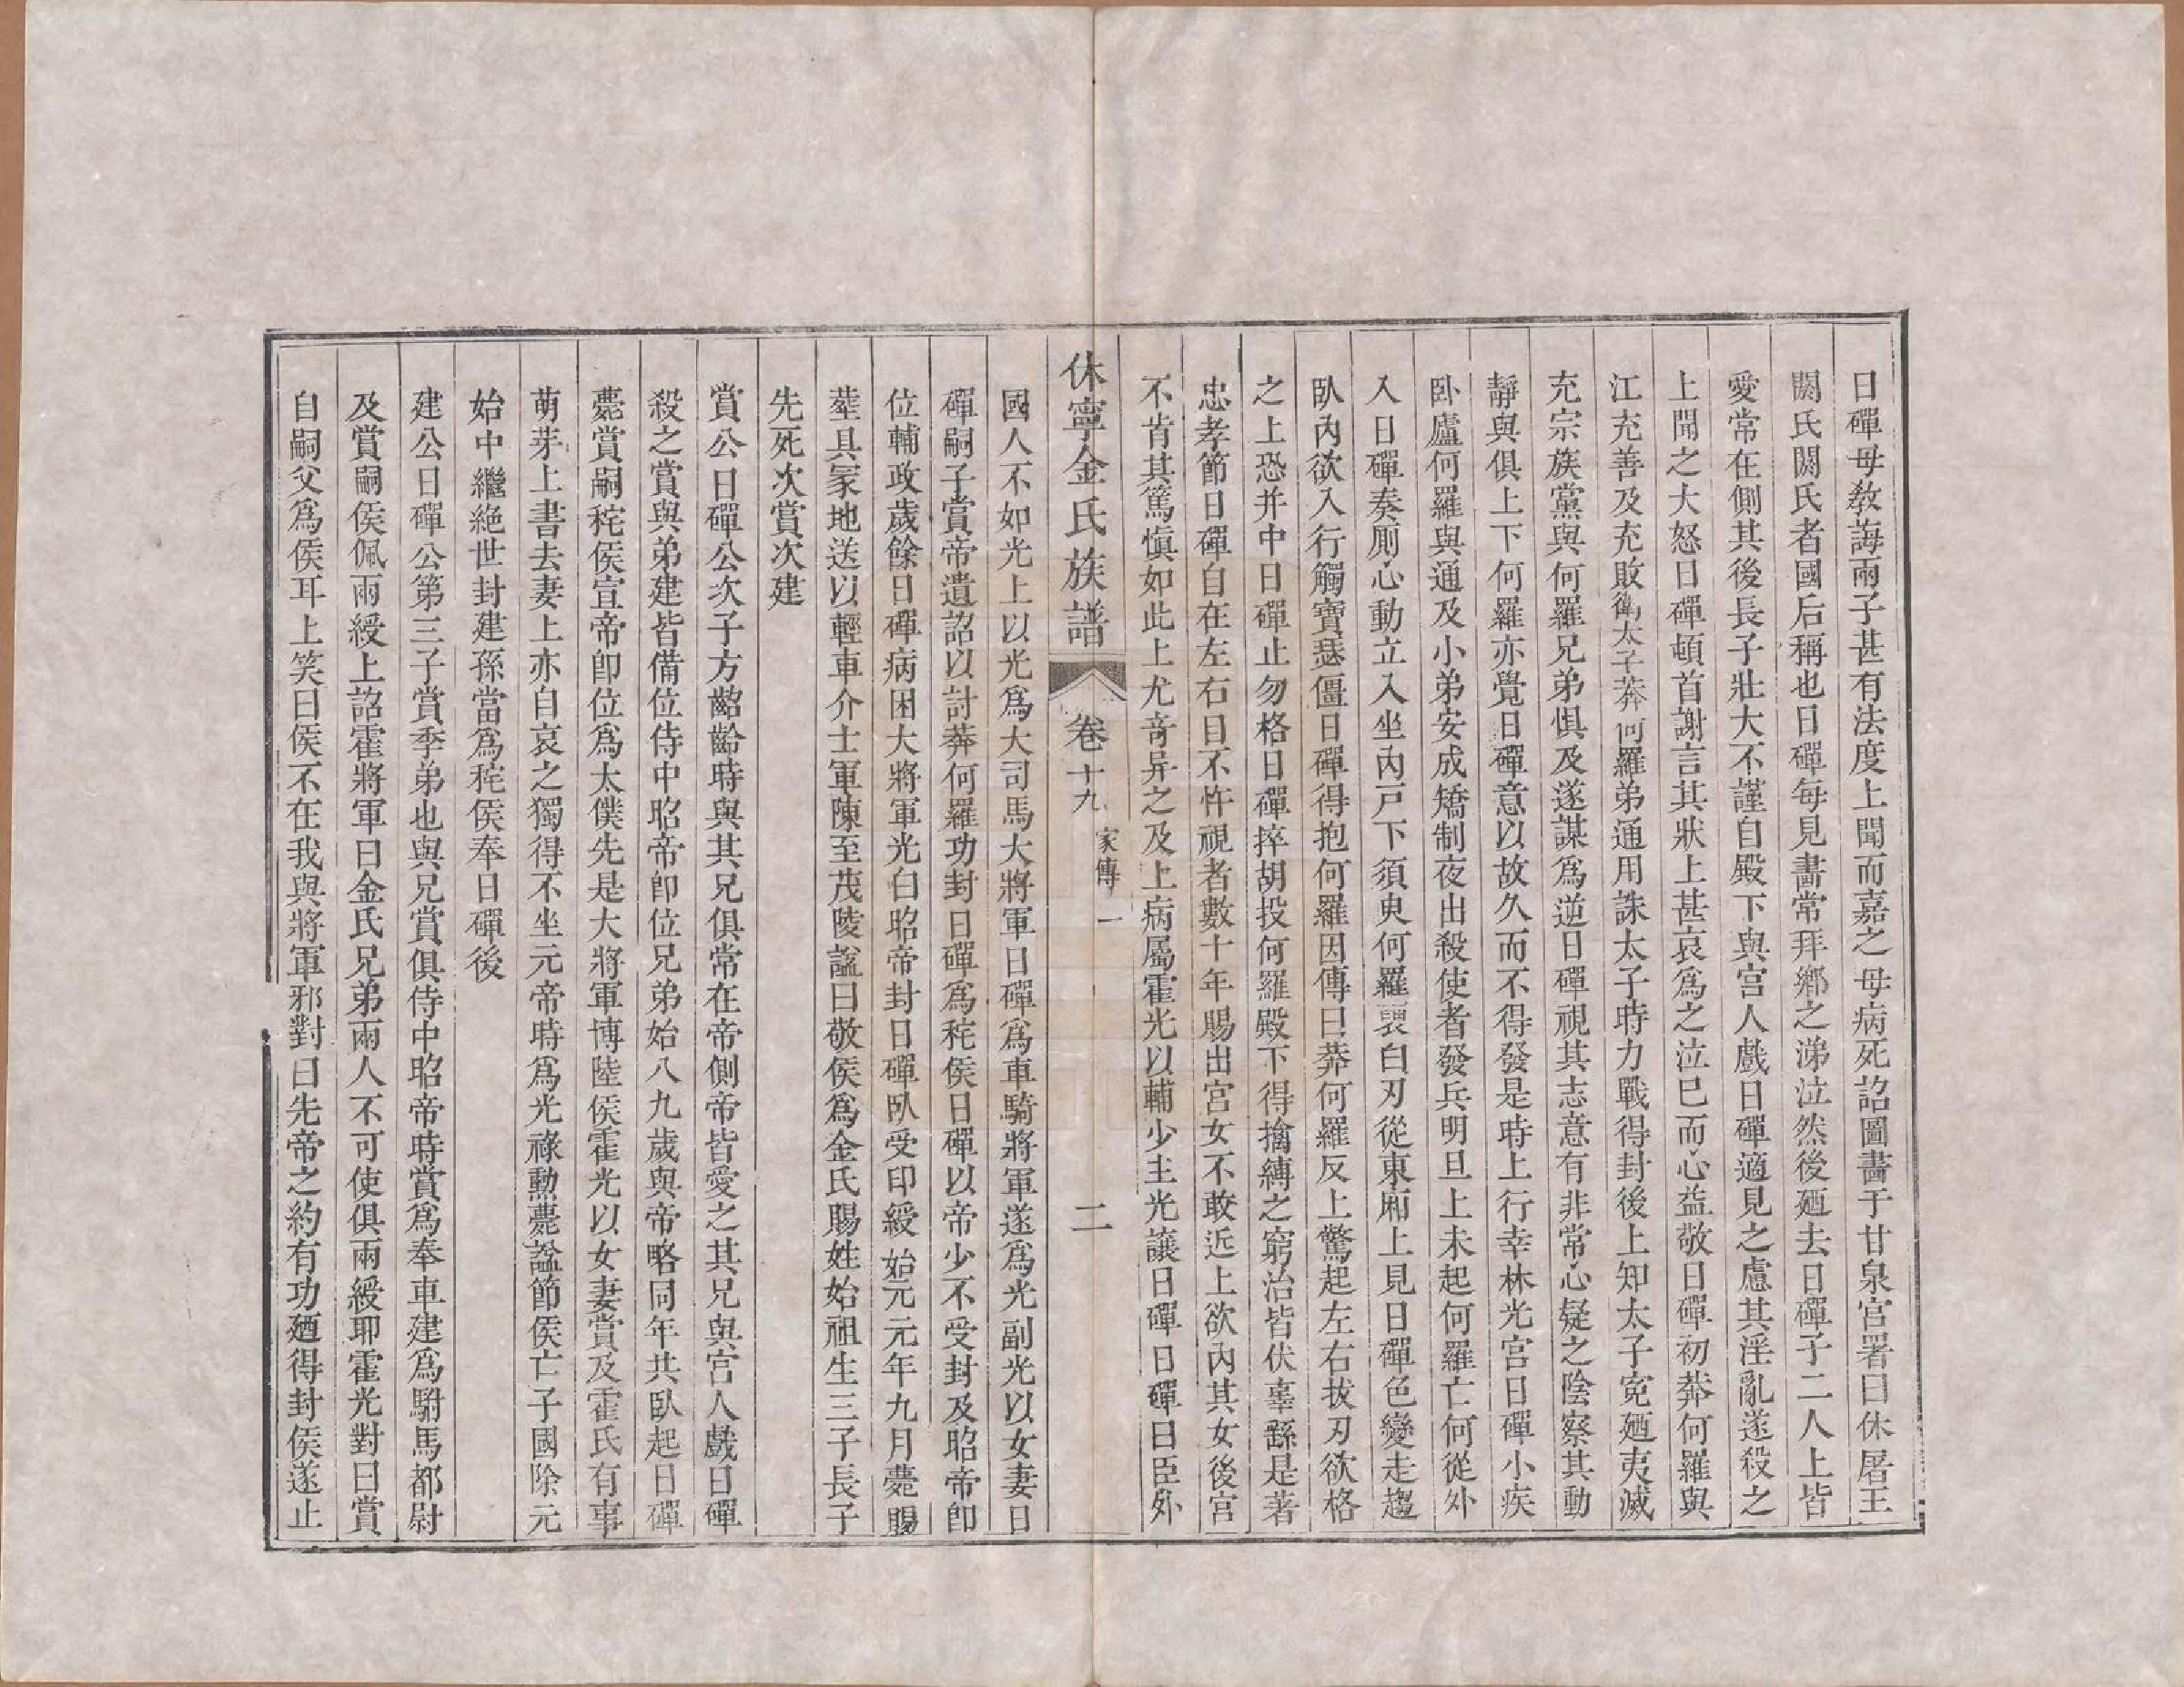 日磾母教誨兩子甚有法度上聞而嘉之母病死詔圖畵于甘泉宮署曰休屠王
閼氏閼氏者國后稱也日磾每見畵常拜鄉之涕泣然後廼去日磾子二人上皆
愛常在側其後長子壯大不謹自殿下與宮人戲日磾適見之慮其淫亂遂殺之
上聞之大怒日磾頓首謝言其狀上甚哀爲之泣巳而心益敬日磾初莽何羅與
江充善及充敗衛太子莽何羅弟通用誅太子時力戰得封後上知太子寃廼夷滅
充宗族黨與何羅兄弟懼及遂謀爲逆日磾視其志意有非常心疑之陰察其動
靜與俱上下何羅亦覺日磾意以故久而不得發是時上行幸林光宮日磾小疾
卧廬何羅與通及小弟安成矯制夜出殺使者發兵明旦上未起何羅亡何從外
入日磾奏厠心動立入坐內戸下須臾何羅裦白刃從東廂上見日磾色變走趨
臥內欲入行觸寶瑟僵日磾得抱何羅因傳曰莽何羅反上驚起左右拔刃欲格
之上恐并中日磾止勿格日磾捽胡投何羅殿下得擒縛之窮治皆伏辜繇是著
忠孝節日磾自在左右目不忤視者數十年賜出宮女不敢近上欲內其女後宮
不肯其篤愼如此上尤竒异之及上病屬霍光以輔少主光讓日磾日磾曰臣外
休寧金氏族譜 卷十九 家傳一 二
國人不如光上以光爲大司馬大將軍日磾爲車騎將軍遂爲光副光以女妻日
磾嗣子賞帝遺詔以討莽何羅功封日磾爲秺侯日磾以帝少不受封及昭帝卽
位輔政歲餘日磾病困大將軍光白昭帝封日磾臥受印綬始元元年九月薨賜
葬具冢地送以輕車介士軍陳至茂陵諡曰敬侯爲金氏賜姓始祖生三子長子
先死次賞次建
賞公日磾公次子方齠齡時與其兄俱常在帝側帝皆愛之其兄與宮人戲日磾
殺之賞與弟建皆備位侍中昭帝卽位兄弟始八九歲與帝略同年共臥起日磾
薨賞嗣秺侯宣帝卽位爲太僕先是大將軍博陸侯霍光以女妻賞及霍氏有事
萌芽上書去妻上亦自哀之獨得不坐元帝時爲光祿勳薨諡節侯亡子國除元
始中繼絶世封建孫當爲秺侯奉日磾後
建公日磾公第三子賞季弟也與兄賞俱侍中昭帝時賞爲奉車建爲駙馬都尉
及賞嗣侯佩兩綬上詔霍將軍曰金氏兄弟兩人不可使俱兩綬耶霍光對曰賞
自嗣父爲侯耳上笑曰侯不在我與將軍邪對曰先帝之約有功廼得封侯遂止